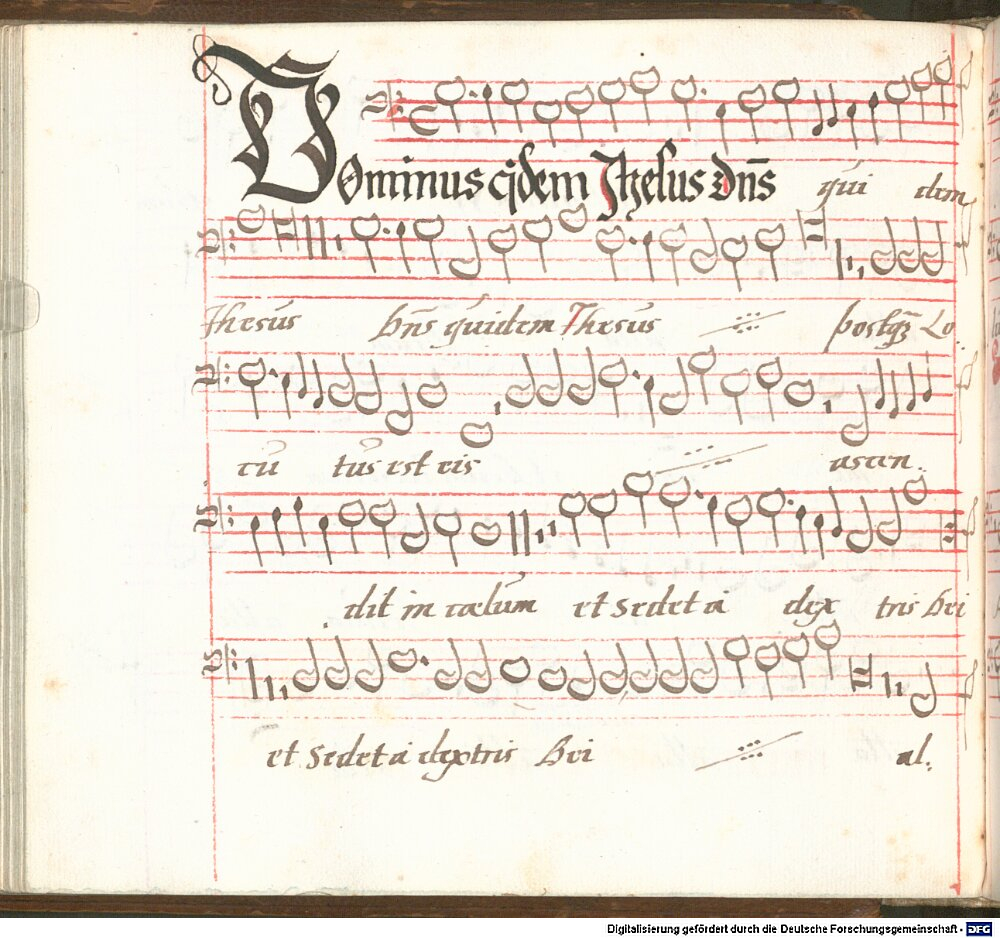 Dominus qdem Jhesus dns̄ qui dem
Jhesus Dns̄ quidem Jhesus postq̄ȝ Lo
cu tus est eis ascen
dit in cœlum et sedet a dex tris Dei
et sedet a dextris Dei al.
Digitalisierung gefördert durch die Deutsche Forschungsgemeinschaft - DFG